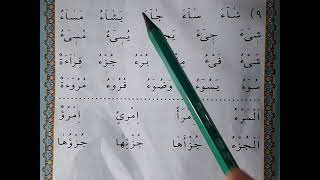 ٩) شَآءَ سَآءَ جَآءَ يَشَآءُ مَسَاءً
شِىْءَ جِىْءَ يُسِىْءُ مُسِىْءُ
شَىْءٍ فَىْءُ بُرْءُ جُزْءُ قِرَاءَةْ
سُوْءِ يَسُوْءُ وُضُوْءُ قُرُوْءُ مُرُوْءَةْ
اَلْمَرْءُ اِمْرَأً اِمْرِئٍ اِمْرُؤٌ
اَلْجُزْءُ جُزْأَهَا جُزْئِهَا جُزْؤُهَا